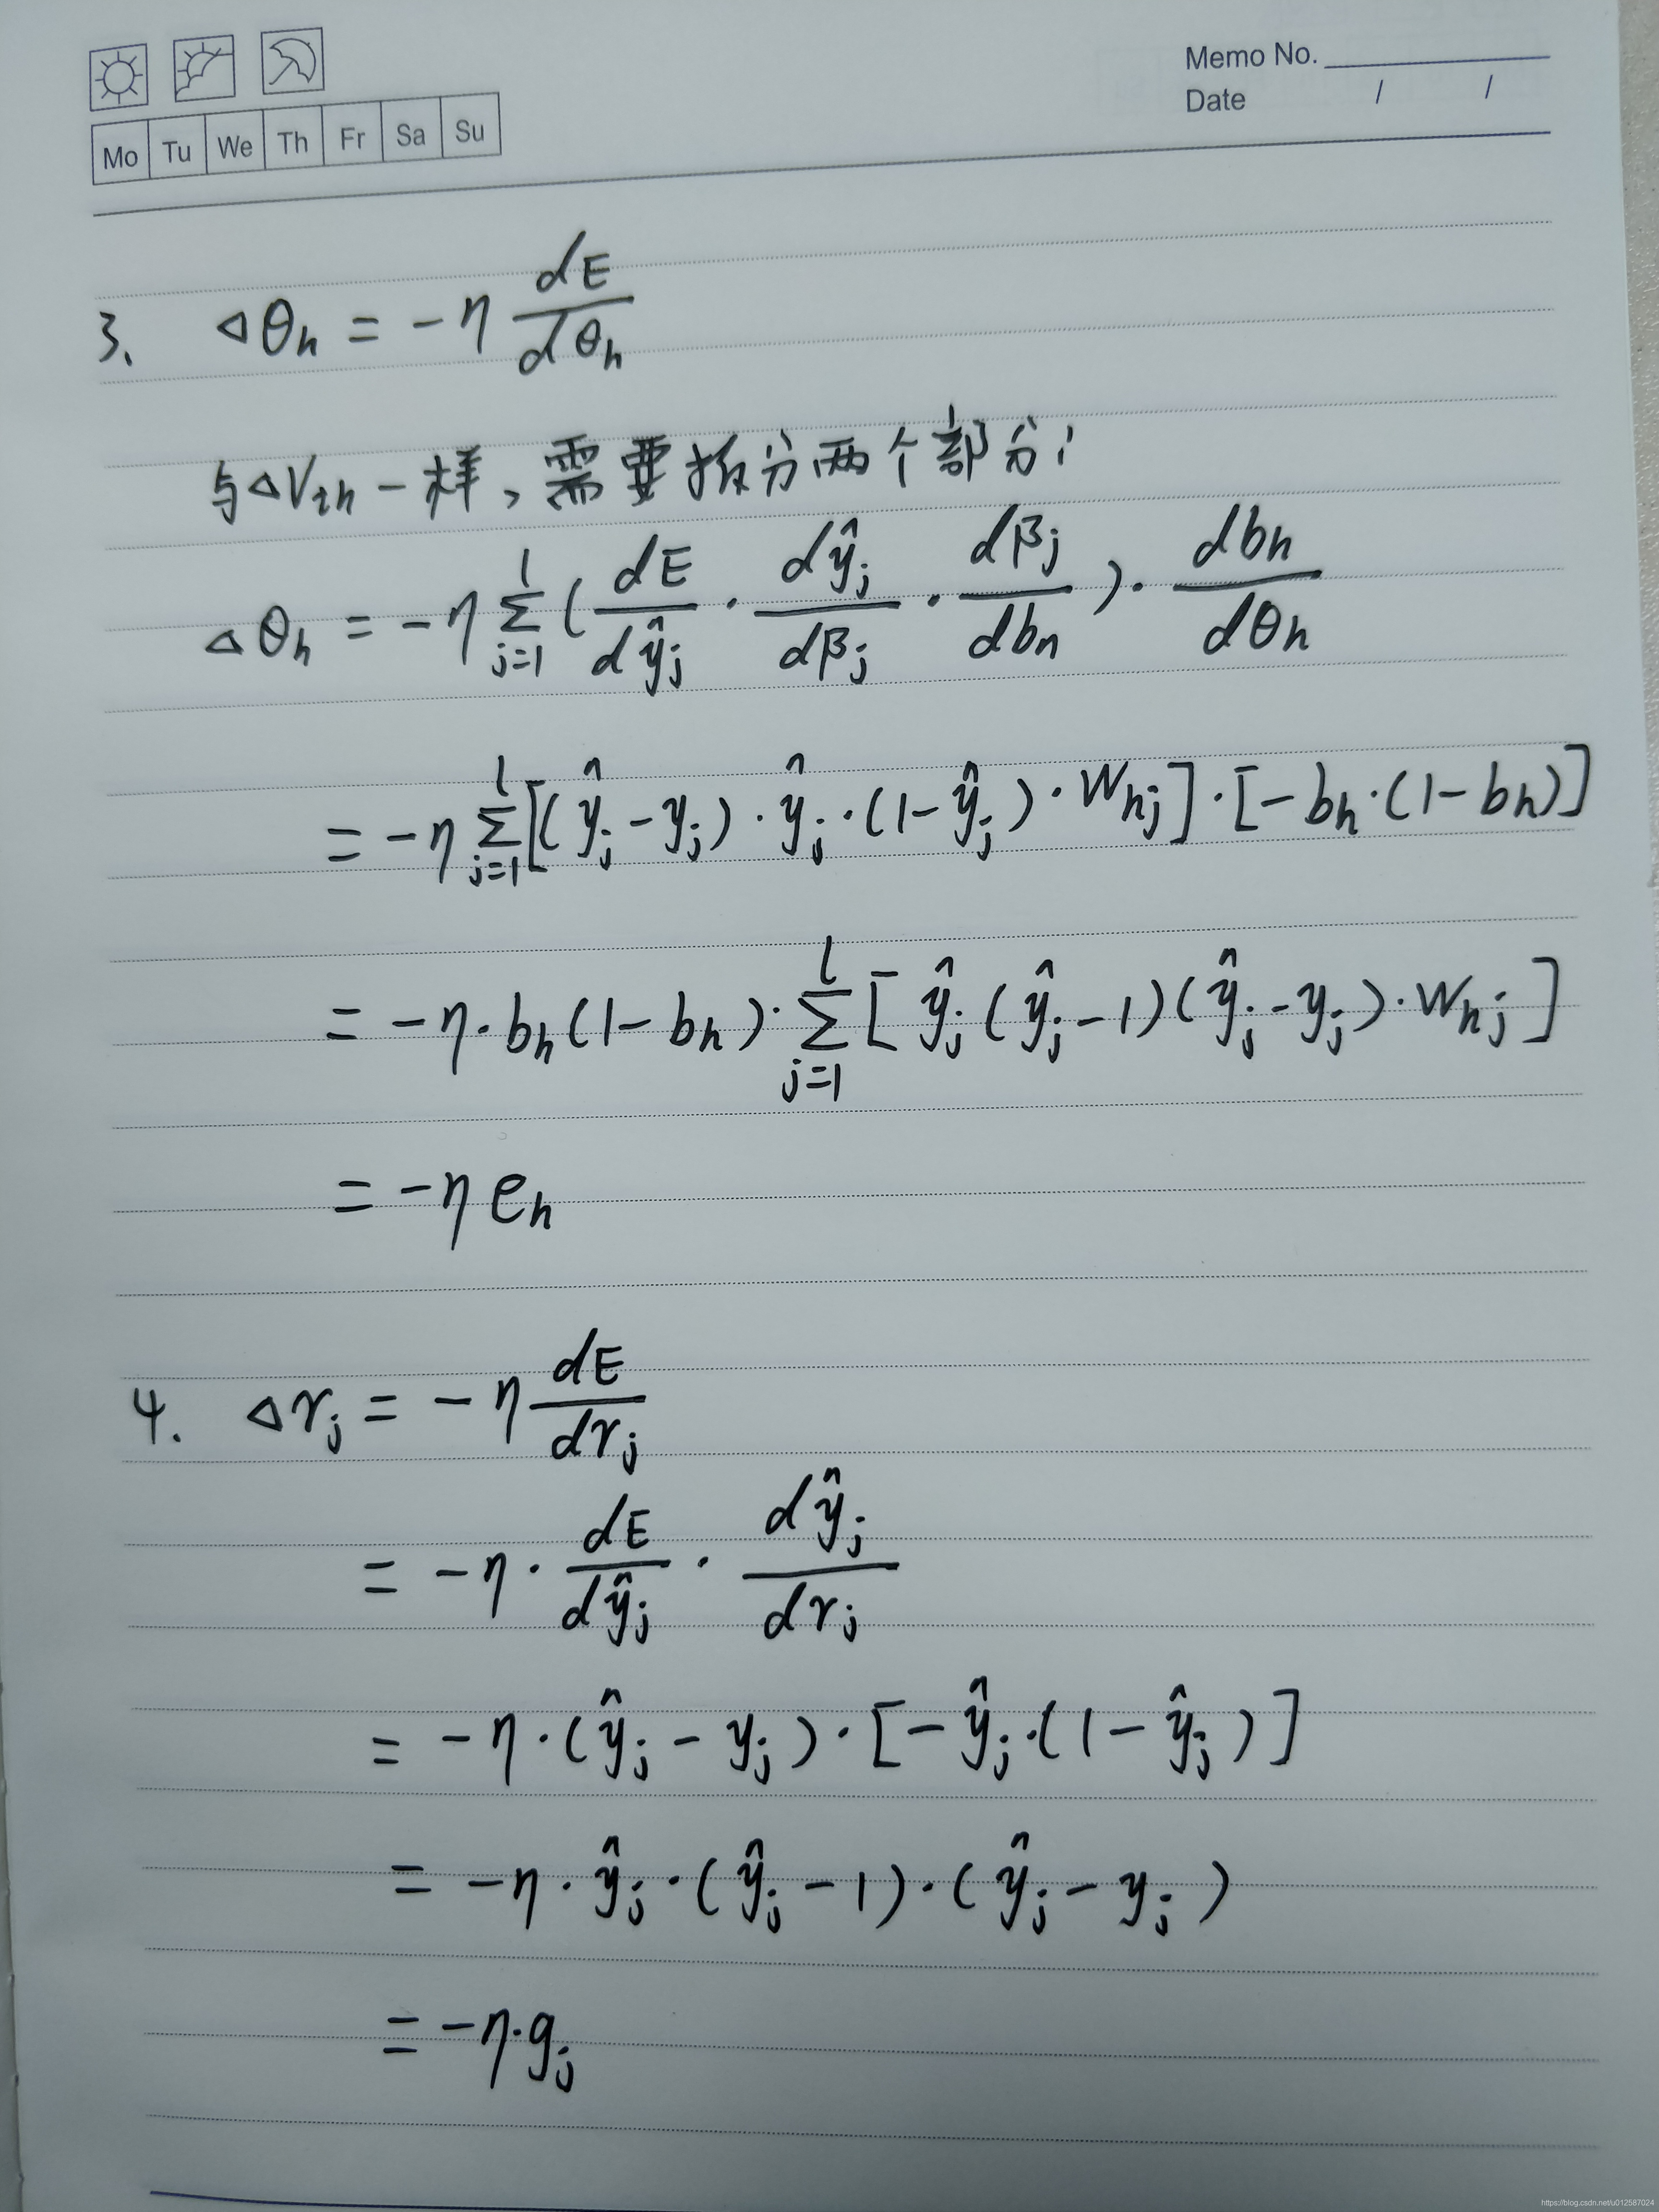 Memo No.
Date / /
Mo Tu We Th Fr Sa Su
3. △θh = -η dE/dθh
与△Vih一样,需要拆分两个部分:
△θh = -η Σ_{j=1}^{l} (dE/dŷj · dŷj/dβj · dβj/dbh) · dbh/dθh
= -η Σ_{j=1}^{l} [(ŷj - yj) · ŷj · (1 - ŷj) · Whj] · [-bh · (1 - bh)]
= -η · bh(1 - bh) · Σ_{j=1}^{l} [ŷj (ŷj - 1)(ŷj - yj) · Whj]
= -η eh
4. △rj = -η dE/drj
= -η · dE/dŷj · dŷj/drj
= -η · (ŷj - yj) · [-ŷj · (1 - ŷj)]
= -η · ŷj · (ŷj - 1) · (ŷj - yj)
= -η · gj
https://blog.csdn.net/u012587024